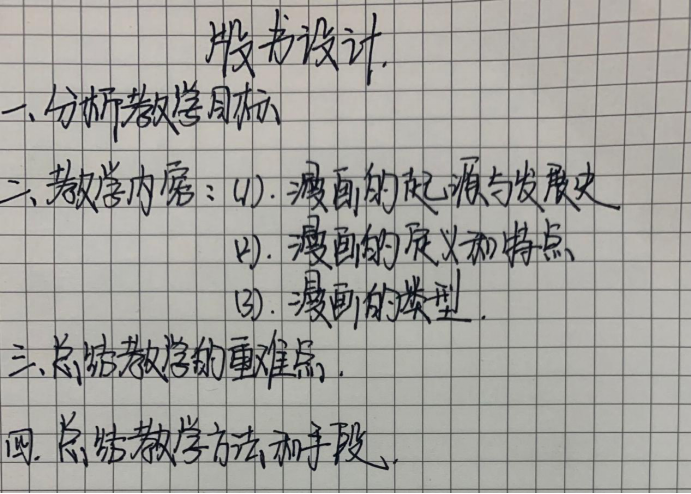 版书设计.
一、分析教学目标
二、教学内容：(1). 漫画的起源与发展史
(2). 漫画的定义和特点
(3). 漫画的类型.
三、总结教学的重难点.
四. 总结教学方法和手段.